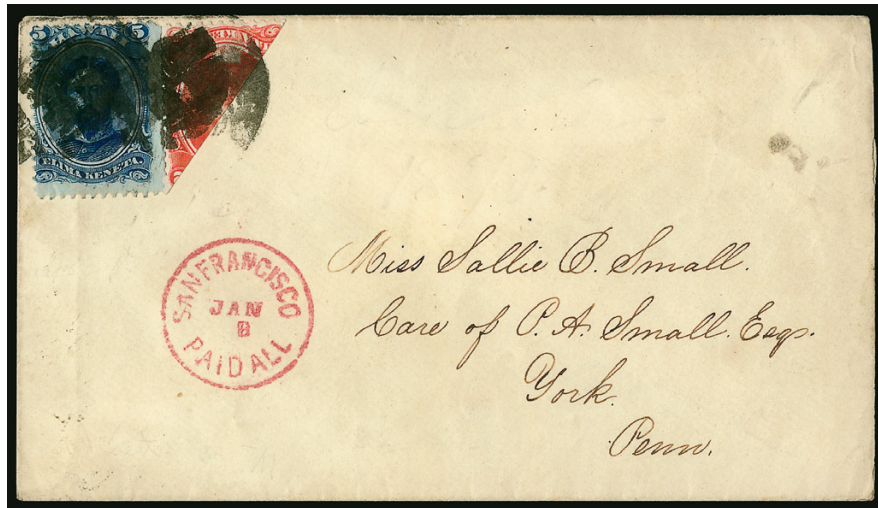 5 5
ELIMA KENETA
SAN FRANCISCO
JAN
8
PAID ALL
Miss Sallie B. Small.
Care of P. A. Small. Esqr.
York.
Penn.